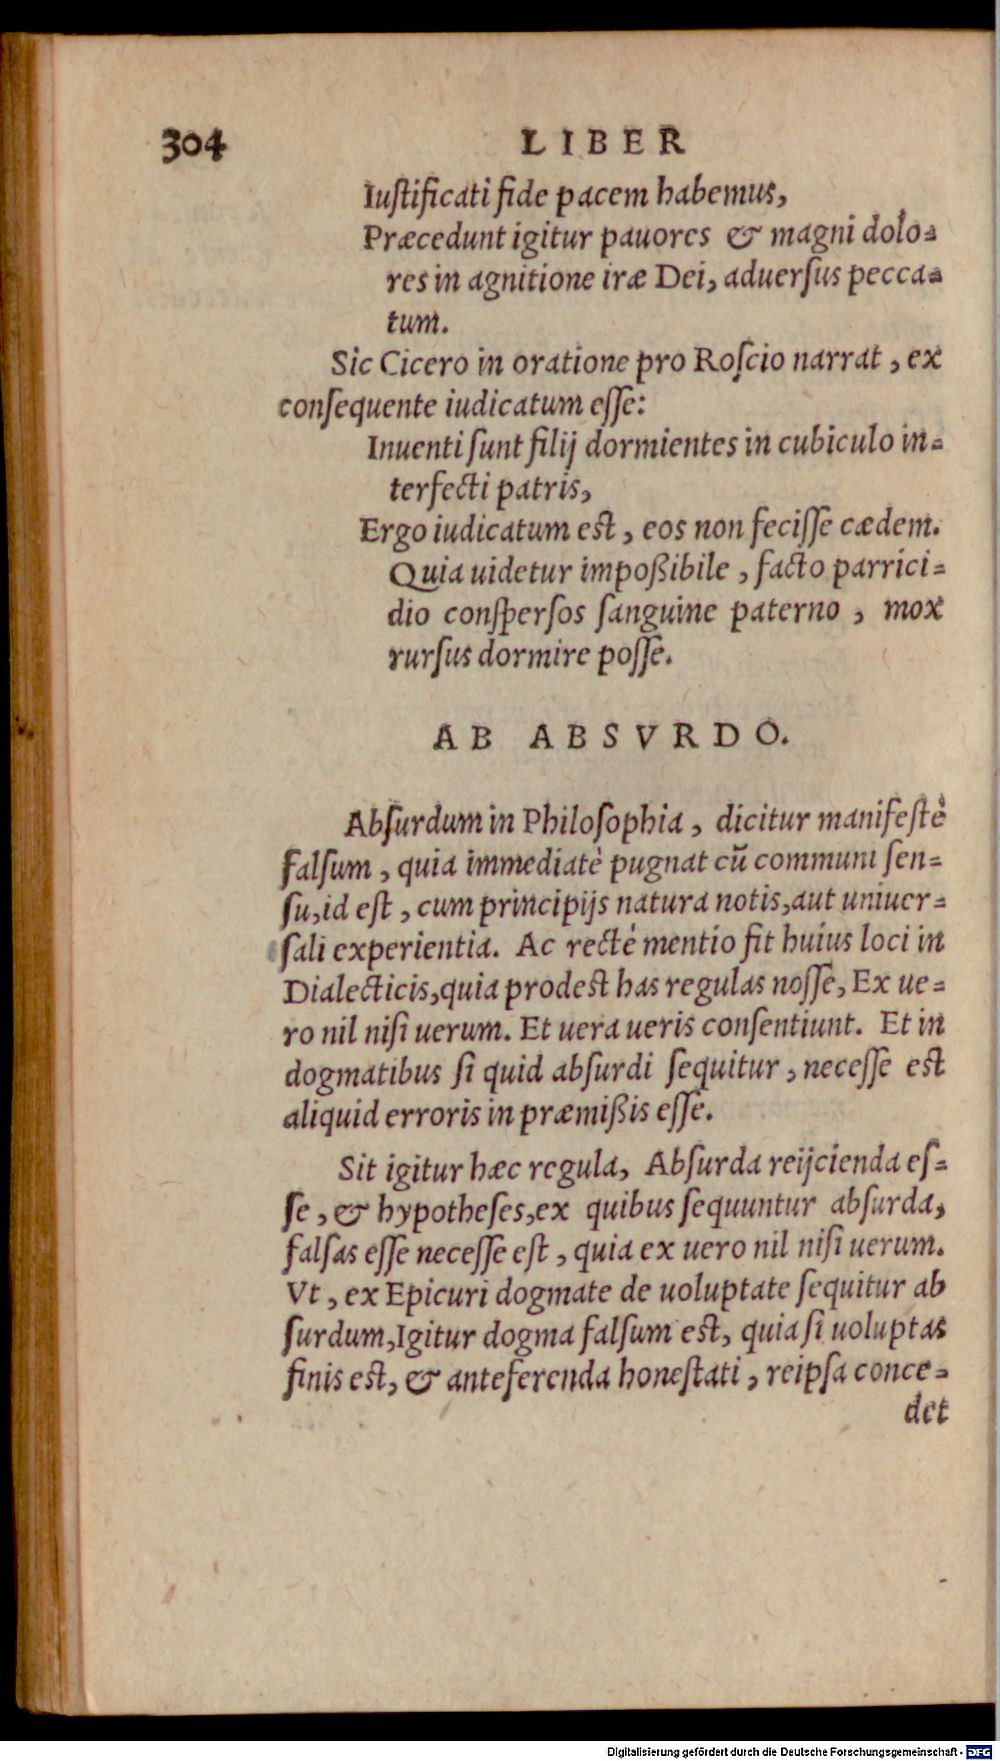 304 LIBER
Iuſtificati fide pacem habemus,
Præcedunt igitur pauores & magni dolo-
res in agnitione iræ Dei, aduerſus pecca-
tum.
Sic Cicero in oratione pro Roſcio narrat, ex
conſequente iudicatum eſſe:
Inuenti ſunt filij dormientes in cubiculo in-
terfecti patris,
Ergo iudicatum eſt, eos non feciſſe cædem.
Quia uidetur impoßibile, facto parrici-
dio conſperſos ſanguine paterno, mox
rurſus dormire poſſe.
AB ABSVRDO.
Abſurdum in Philoſophia, dicitur manifeſtè
falſum, quia immediatè pugnat cū communi ſen-
ſu, id eſt, cum principijs natura notis, aut uniuer-
ſali experientia. Ac rectè mentio fit huius loci in
Dialecticis, quia prodeſt has regulas noſſe, Ex ue-
ro nil niſi uerum. Et uera ueris conſentiunt. Et in
dogmatibus ſi quid abſurdi ſequitur, neceſſe eſt
aliquid erroris in præmißis eſſe.
Sit igitur hæc regula, Abſurda reijcienda eſ-
ſe, & hypotheſes, ex quibus ſequuntur abſurda,
falſas eſſe neceſſe eſt, quia ex uero nil niſi uerum.
Vt, ex Epicuri dogmate de uoluptate ſequitur ab
ſurdum, Igitur dogma falſum eſt, quia ſi uoluptas
finis eſt, & anteferenda honeſtati, reipſa conce-
det
Digitalisierung gefördert durch die Deutsche Forschungsgemeinschaft - DFG